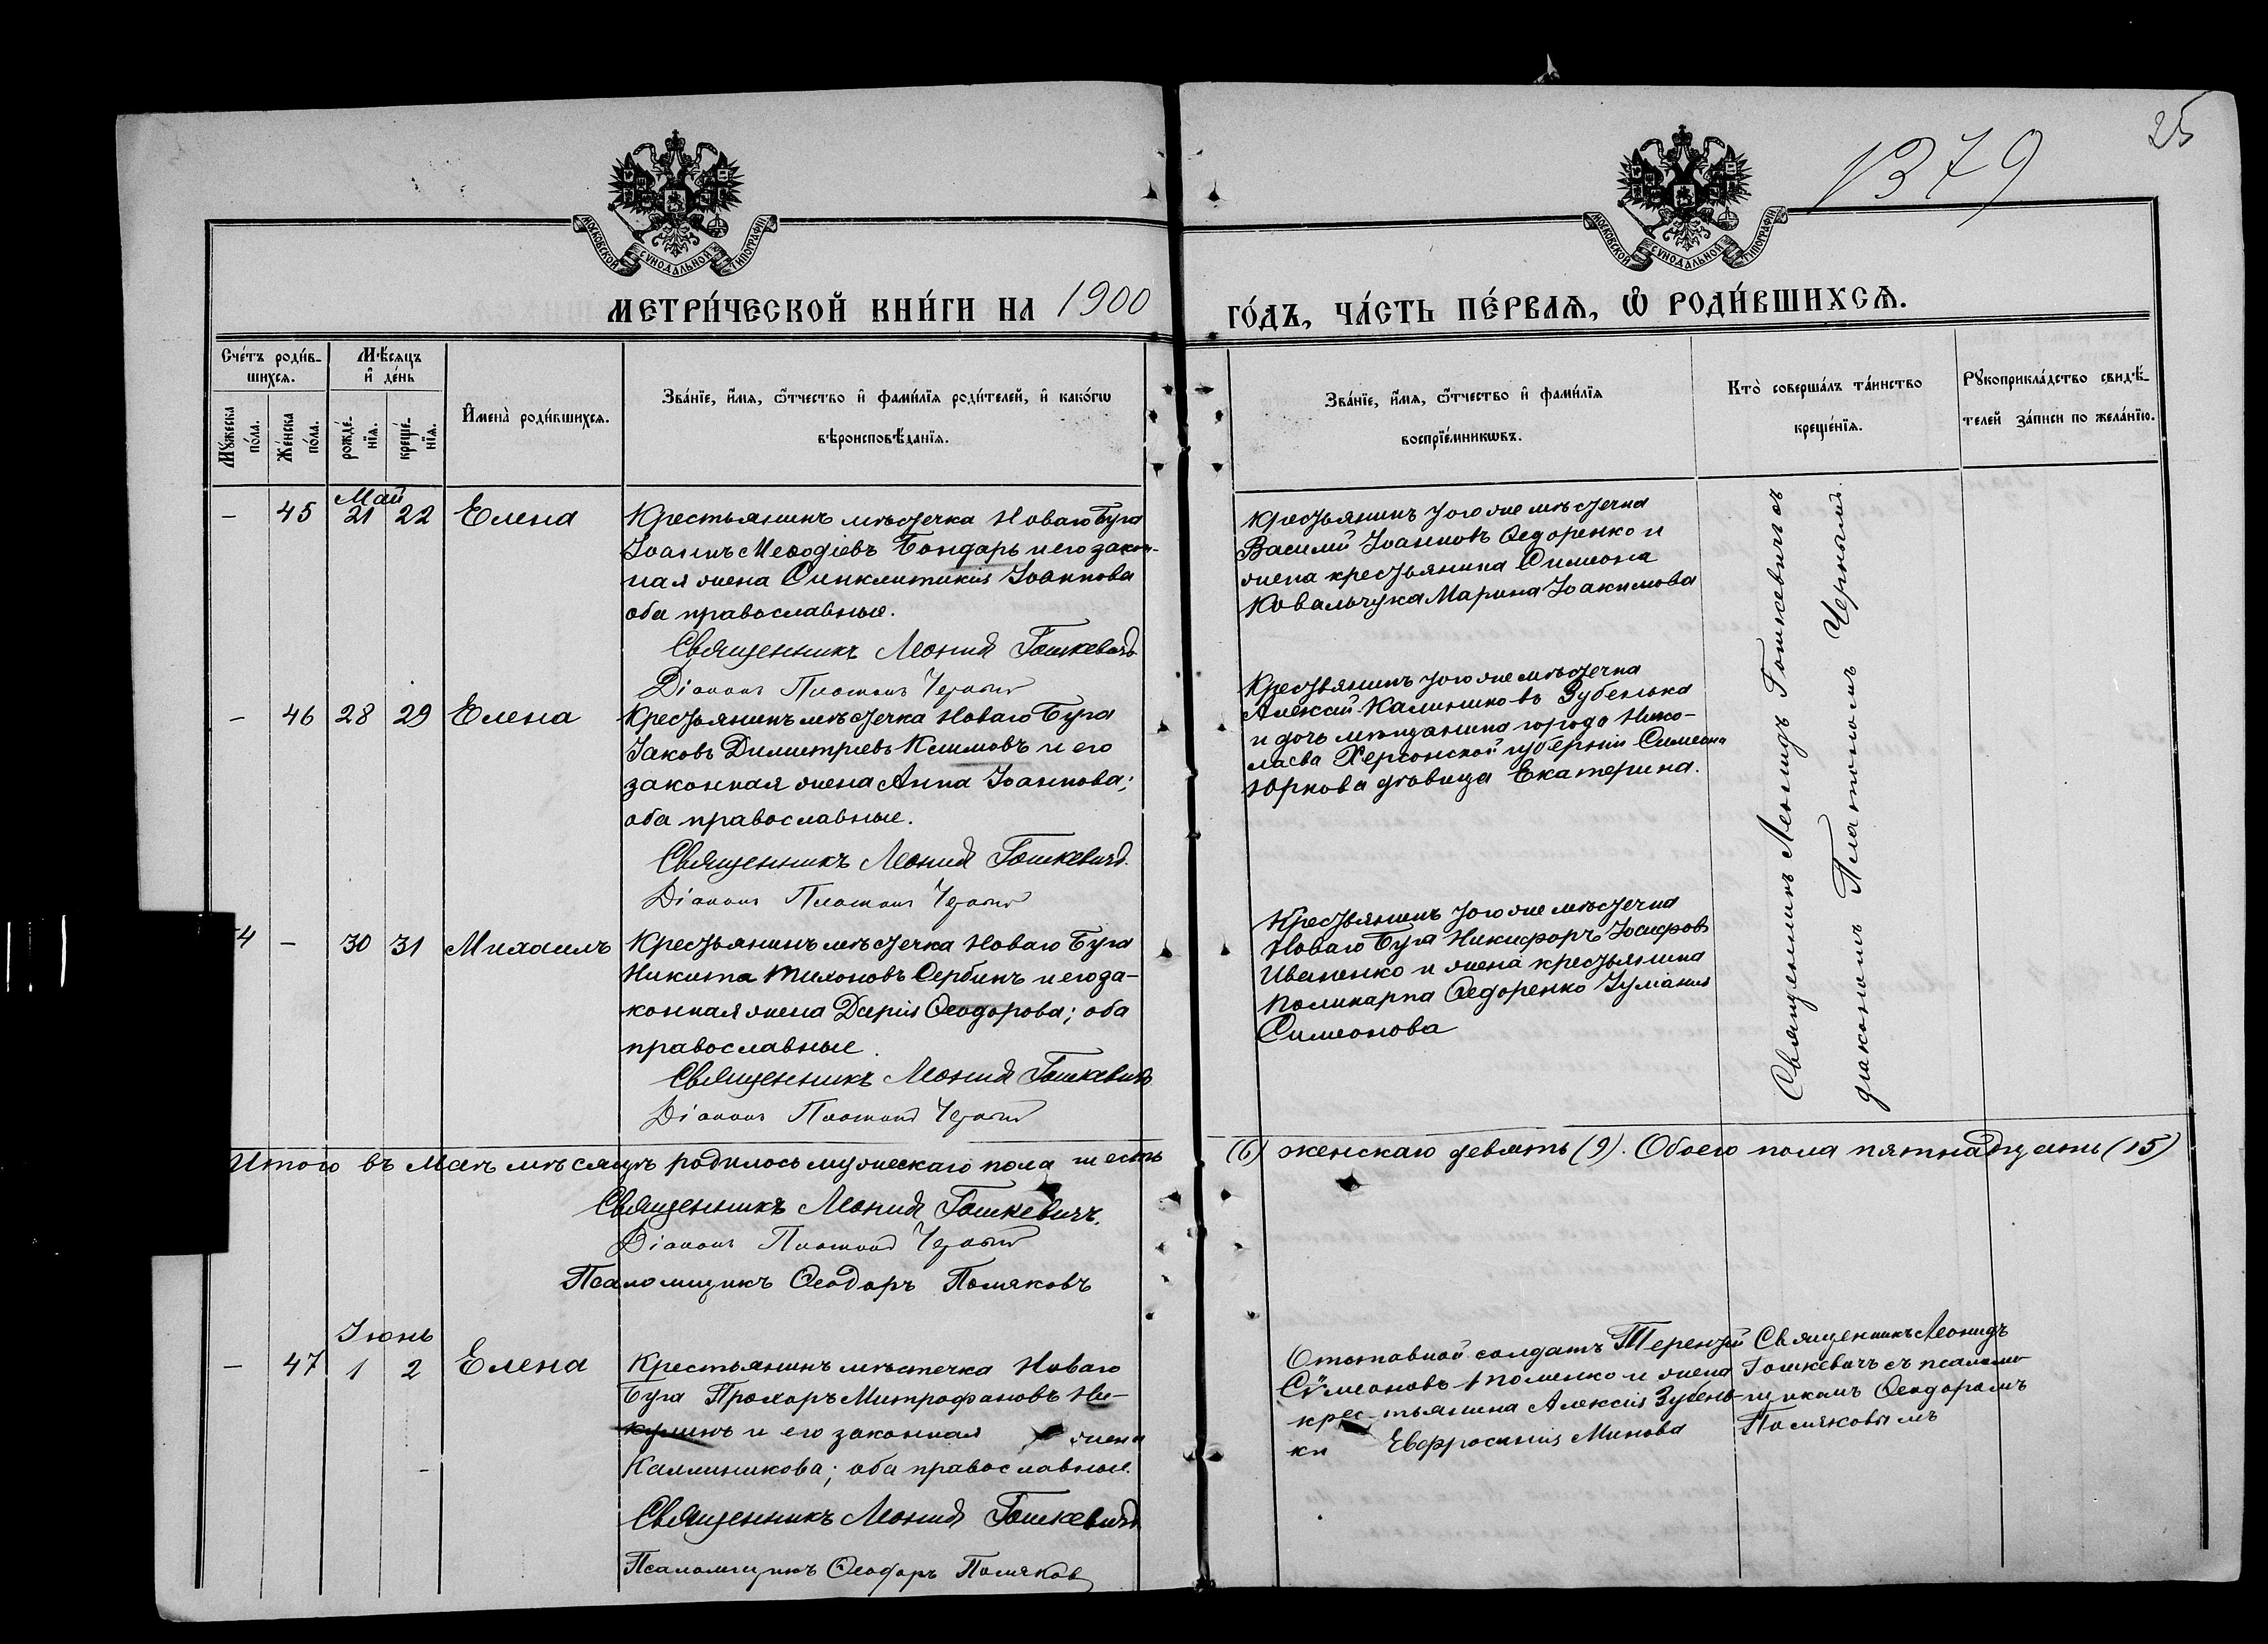 25
1379
МОСКОВСКОЙ СѴНОДАЛЬНОЙ ТИПОГРАФІИ
МОСКОВСКОЙ СѴНОДАЛЬНОЙ ТИПОГРАФІИ
МЕТРИ́ЧЕСКОЙ КНИ́ГИ НА 1900 ГО́ДЪ, ЧА́СТЬ ПЕ́РВАѦ, Ѿ РОДИ́ВШИХСѦ.
Сче́тъ роди́в-
шихсѧ.
Мꙋжеска по́ла.
Же́нска по́ла.
Мѣ́сѧцъ
и҆ де́нь
рожде́-
нїѧ.
креще́-
нїѧ.
И҆мена̀ роди́вшихсѧ.
Зва́нїе, и҆́мѧ, ѻ҆́тчество и҆ фами́лїѧ роди́телей, и҆ како́гѡ
вѣроисповѣ́данїѧ.
Зва́нїе, и҆́мѧ, ѻ҆́тчество и҆ фами́лїѧ
воспрїе́мникѡвъ.
Кто̀ соверша́лъ та́инство
креще́нїѧ.
Рꙋкоприкла́дство свидѣ́-
телей за́писи по жела́нїю.
Май
– 45 21 22 Елена
Крестьянинъ мѣстечка Новаго Буга
Іоаннъ Меѳодіевъ Бондарь и его закон-
ная жена Синклитикія Іоаннова
оба православные.
Священникъ Леонид Гошкевичъ
Діаконъ Платонъ Черный
Крестьянинъ того же мѣстечка
Василій Іоанновъ Ѳедоренко и
жена крестьянина Симеона
Ковальчука Марина Іоакимова
– 46 28 29 Елена
Крестьянинъ мѣстечка Новаго Буга
Іаковъ Димитріевъ Климовъ и его
законная жена Анна Іоаннова;
оба православные.
Священникъ Леонид Гошкевичъ.
Діаконъ Платонъ Черный
Крестьянинъ того же мѣстечка
Алексій Калинниковъ Зубенька
и дочь мѣщанина города Нико-
лаева Херсонской губерніи Симеона
Юркова дѣвица Екатерина.
4 – 30 31 Михаилъ
Крестьянинъ мѣстечка Новаго Буга
Никита Тихоновъ Сербинъ и его за-
конная жена Дарія Ѳеодорова; оба
православные.
Священникъ Леонид Гошкевичъ
Діаконъ Платонъ Черный
Крестьянинъ того же мѣстечка
Новаго Буга Никифоръ Іосифовъ
Иваненко и жена крестьянина
Поликарпа Ѳедоренко Іуліанія
Симеонова
Священникъ Леонидъ Гошкевичъ съ
діакономъ Платономъ Чернымъ.
Итого въ Маѣ мѣсяцѣ родилось мужескаго пола шесть (6) женскаго девять (9). Обоего пола пятнадцать (15)
Священникъ Леонид Гошкевичъ.
Діаконъ Платонъ Черный
Псаломщикъ Ѳеодоръ Поляковъ
Іюнь
– 47 1 2 Елена
Крестьянинъ мѣстечка Новаго
Буга Прохоръ Митрофановъ Ни-
кулинъ и его законная жена
Каллиникова; оба православные.
Священникъ Леонид Гошкевичъ
Псаломщикъ Ѳеодоръ Поляков
Отставной солдатъ Терентій
Сѵмеоновъ и жена
крестьянина Алексія Зубень-
ки Евфросинія Минова
Священникъ Леонидъ
Гошкевичъ съ псалом-
щикомъ Ѳеодоромъ
Поляковымъ